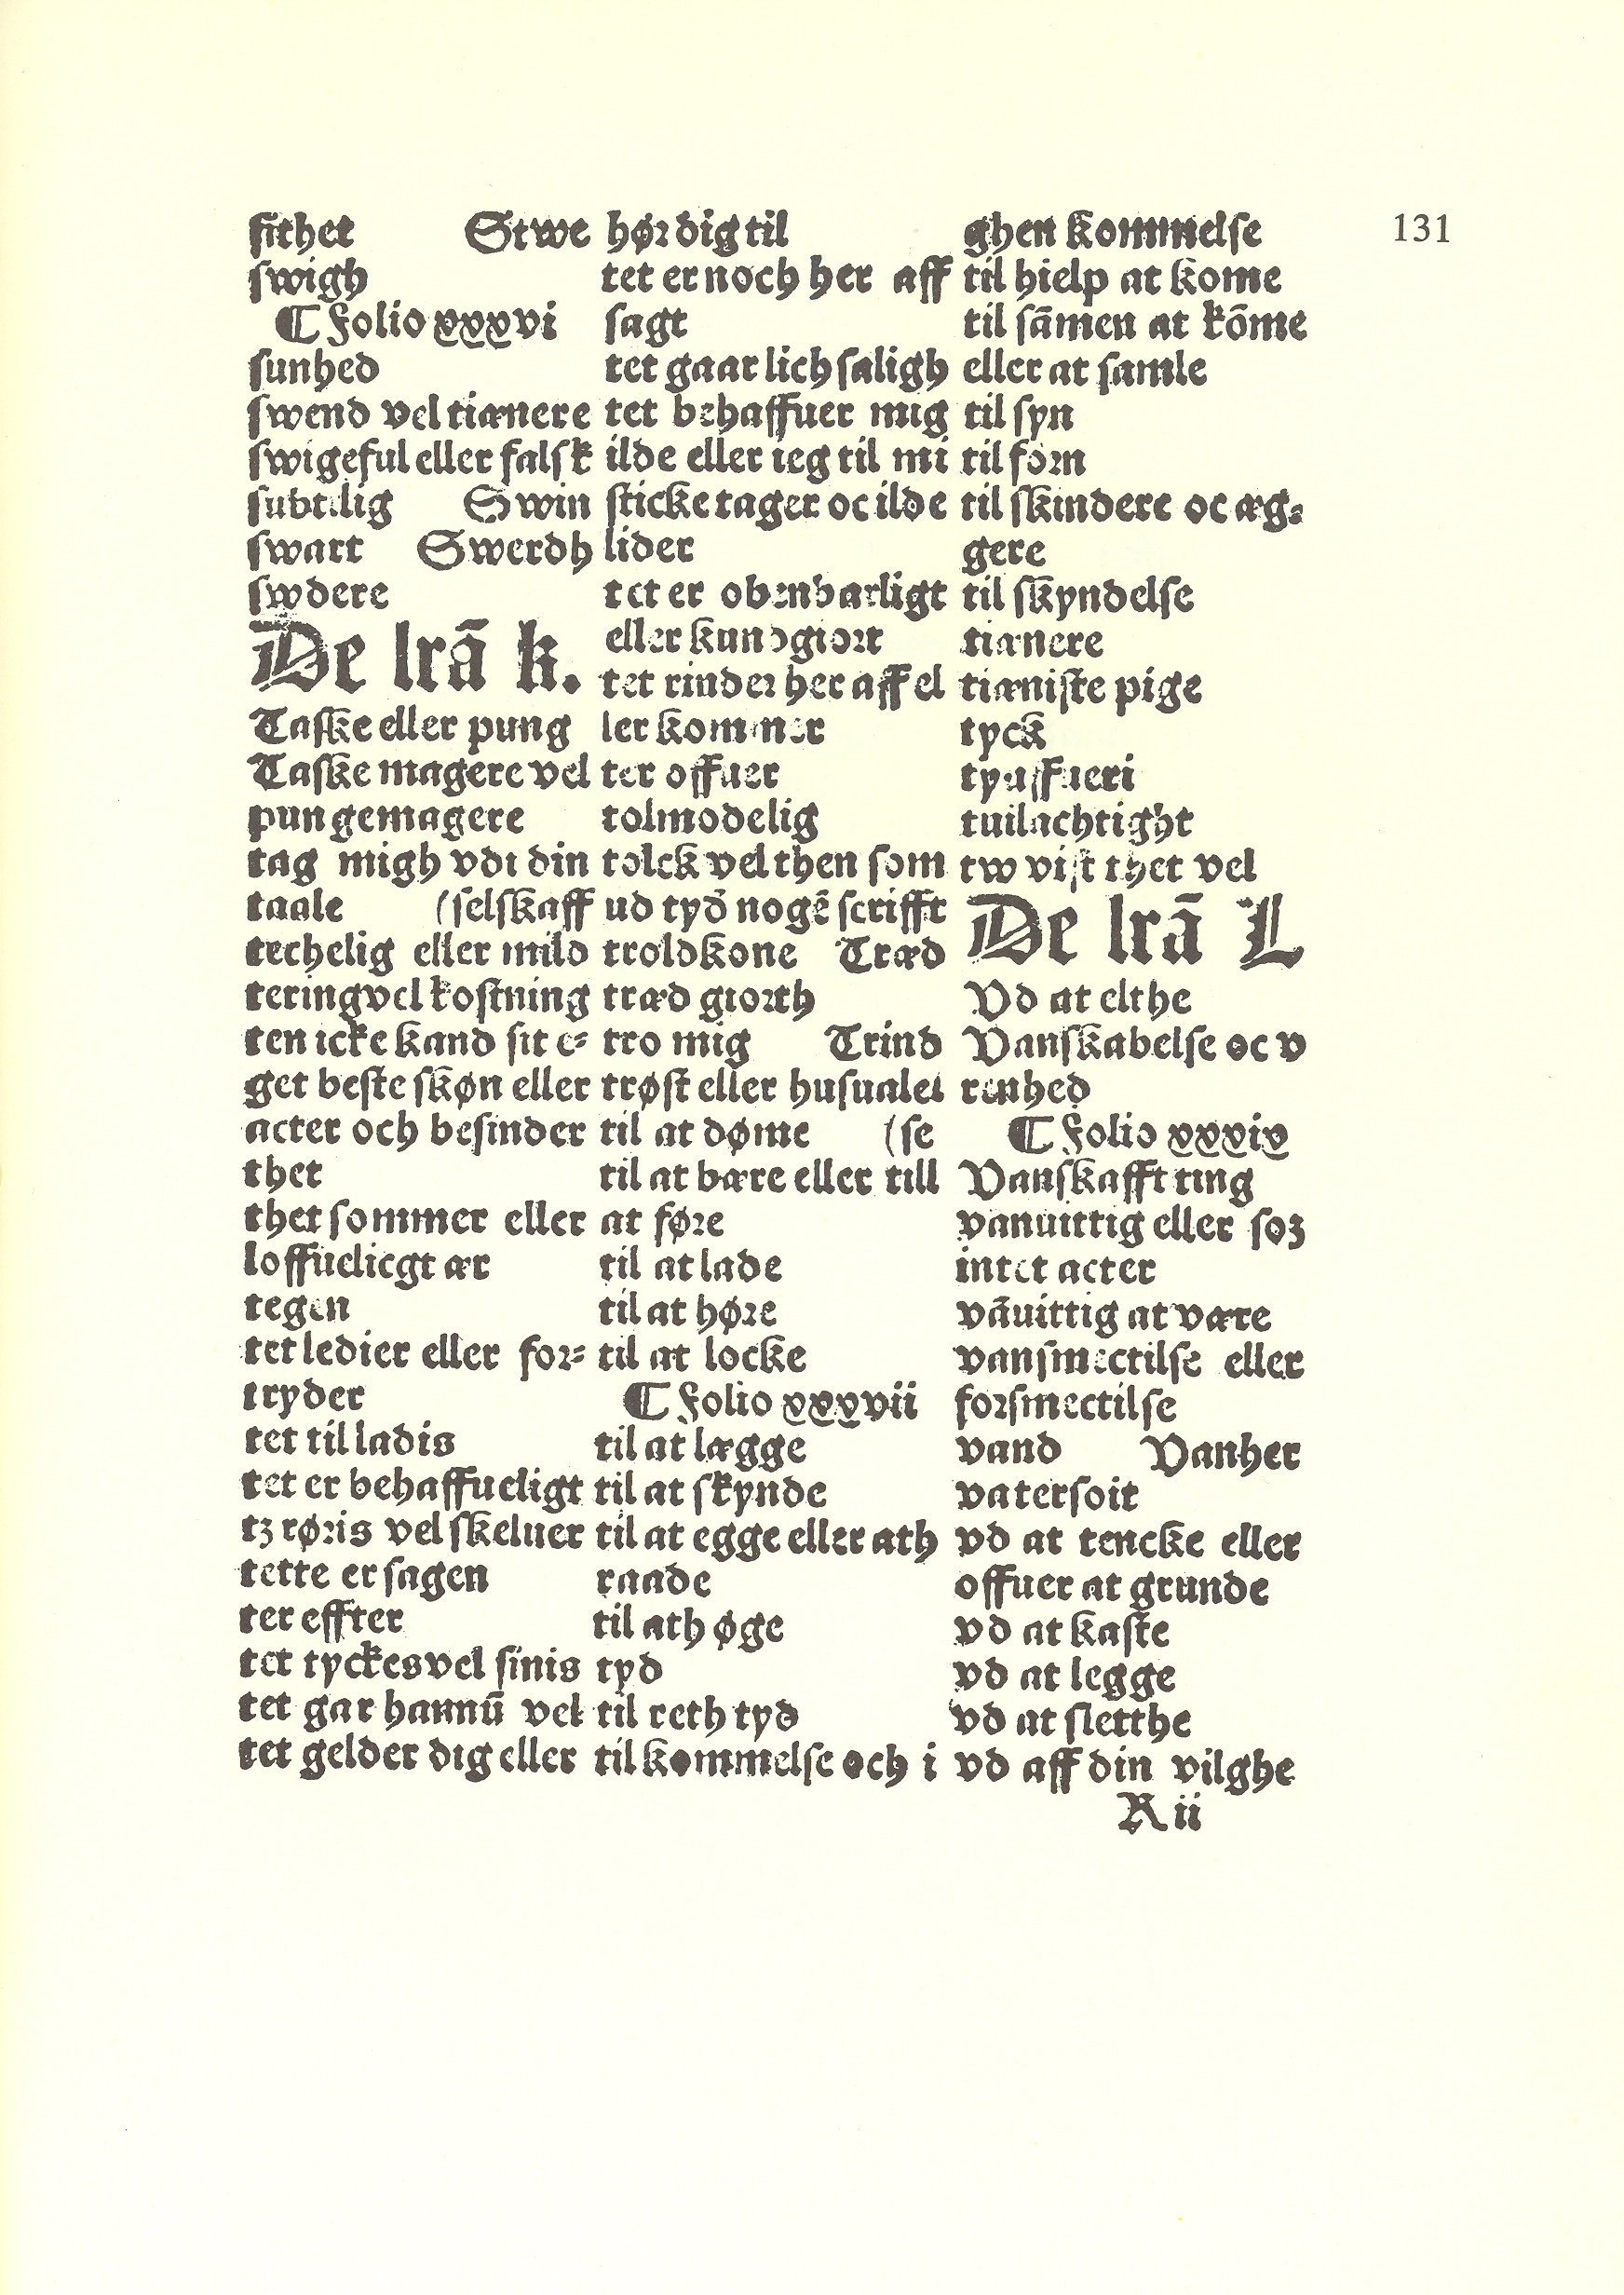 131
ſithet Stwe
ſwigh
¶ Folio xxxvi
ſunhed
ſwend vel tiænere
ſwigeful eller falſk
ſubtilig Swin
ſwart Swerdh
ſwdere
De lrã k.
Taſke eller pung
Taſke magere vel
pungemagere
tag migh vdi din
taale (ſelſkaff
techelig eller mild
tering vel koſtning
ten icke kand ſit e⸗
get beſte ſkøn eller
acter och beſinder
thet
thet ſommer eller
loffueligt ær
tegen
tet ledier eller for⸗
tryder
tet til ladis
tet er behaffueligt
tꝫ røris vel ſkeluer
tette er ſagen
ter effter
tet tyckes vel ſinis
tet gar hannū vel
tet gelder dig eller
hør dig til
tet er noch her aff
ſagt
tet gaar lich ſaligh
tet behaffuer mig
ilde eller ieg til mi
ſticke tager oc ilde
lider
tet er obenbarligt
eller kundgiort
tet rinder her aff el
ler kommer
ter offuer
tolmodelig
tolck vel then ſom
ud tyd nogē ſcrifft
troldkone Træd
træd giorth
tro mig Trind
trøſt eller huſualel
til at døme (ſe
til at bære eller till
at føre
til at lade
til at høre
til at locke
¶ Folio xxxvii
til at lægge
til at ſkynde
til at egge eller ath
raade
til ath øge
tyd
til reth tyd
til kommelſe och i
ghen kommelſe
til hielp at kome
til ſāmen at kōme
eller at ſamle
til ſyn
til forn
til ſkindere oc æg⸗
gere
til ſkyndelſe
tiænere
tiæniſte pige
tyck
tyuffueri
tuilachtight
tw viſt thet vel
De lrã L
Vd at elthe
Vanſkabelſe oc v
renhed
¶ Folio xxxix
Vanſkafft ting
vanuittig eller ſoꝫ
intet acter
vāuittig at være
vanſmectilſe eller
forſmectilſe
vand Vanher
vaterſoit
vd at tencke eller
offuer at grunde
vd at kaſte
vd at legge
vd at ſletthe
vd aff din vilghe
R ii